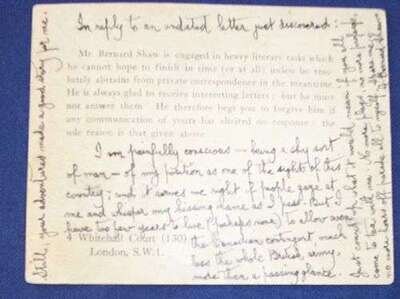 In reply to an undated letter just discovered:
Mr. Bernard Shaw is engaged in heavy literary tasks which
he cannot hope to finish in time (or at all) unless he reso-
lutely abstains from private correspondence in the meantime.
He is always glad to receive interesting letters; but he must
not answer them. He therefore begs you to forgive him if
any communication of yours has elicited no response: the
sole reason is that given above
I am painfully conscious — being a shy sort
of man — of my position as one of the sights of this
country; and it serves me right if people gaze at
me and whisper my name as I pass. But I
have too few years to live (perhaps none) to allow
the Canadian contingent, much
less the whole British army,
more than a passing glance.
4 Whitehall Court (130)
London, S.W.1.
Just consider what it would mean if you all
come to
no more
Still, your adventures made a good story for me.
G. Bernard Shaw